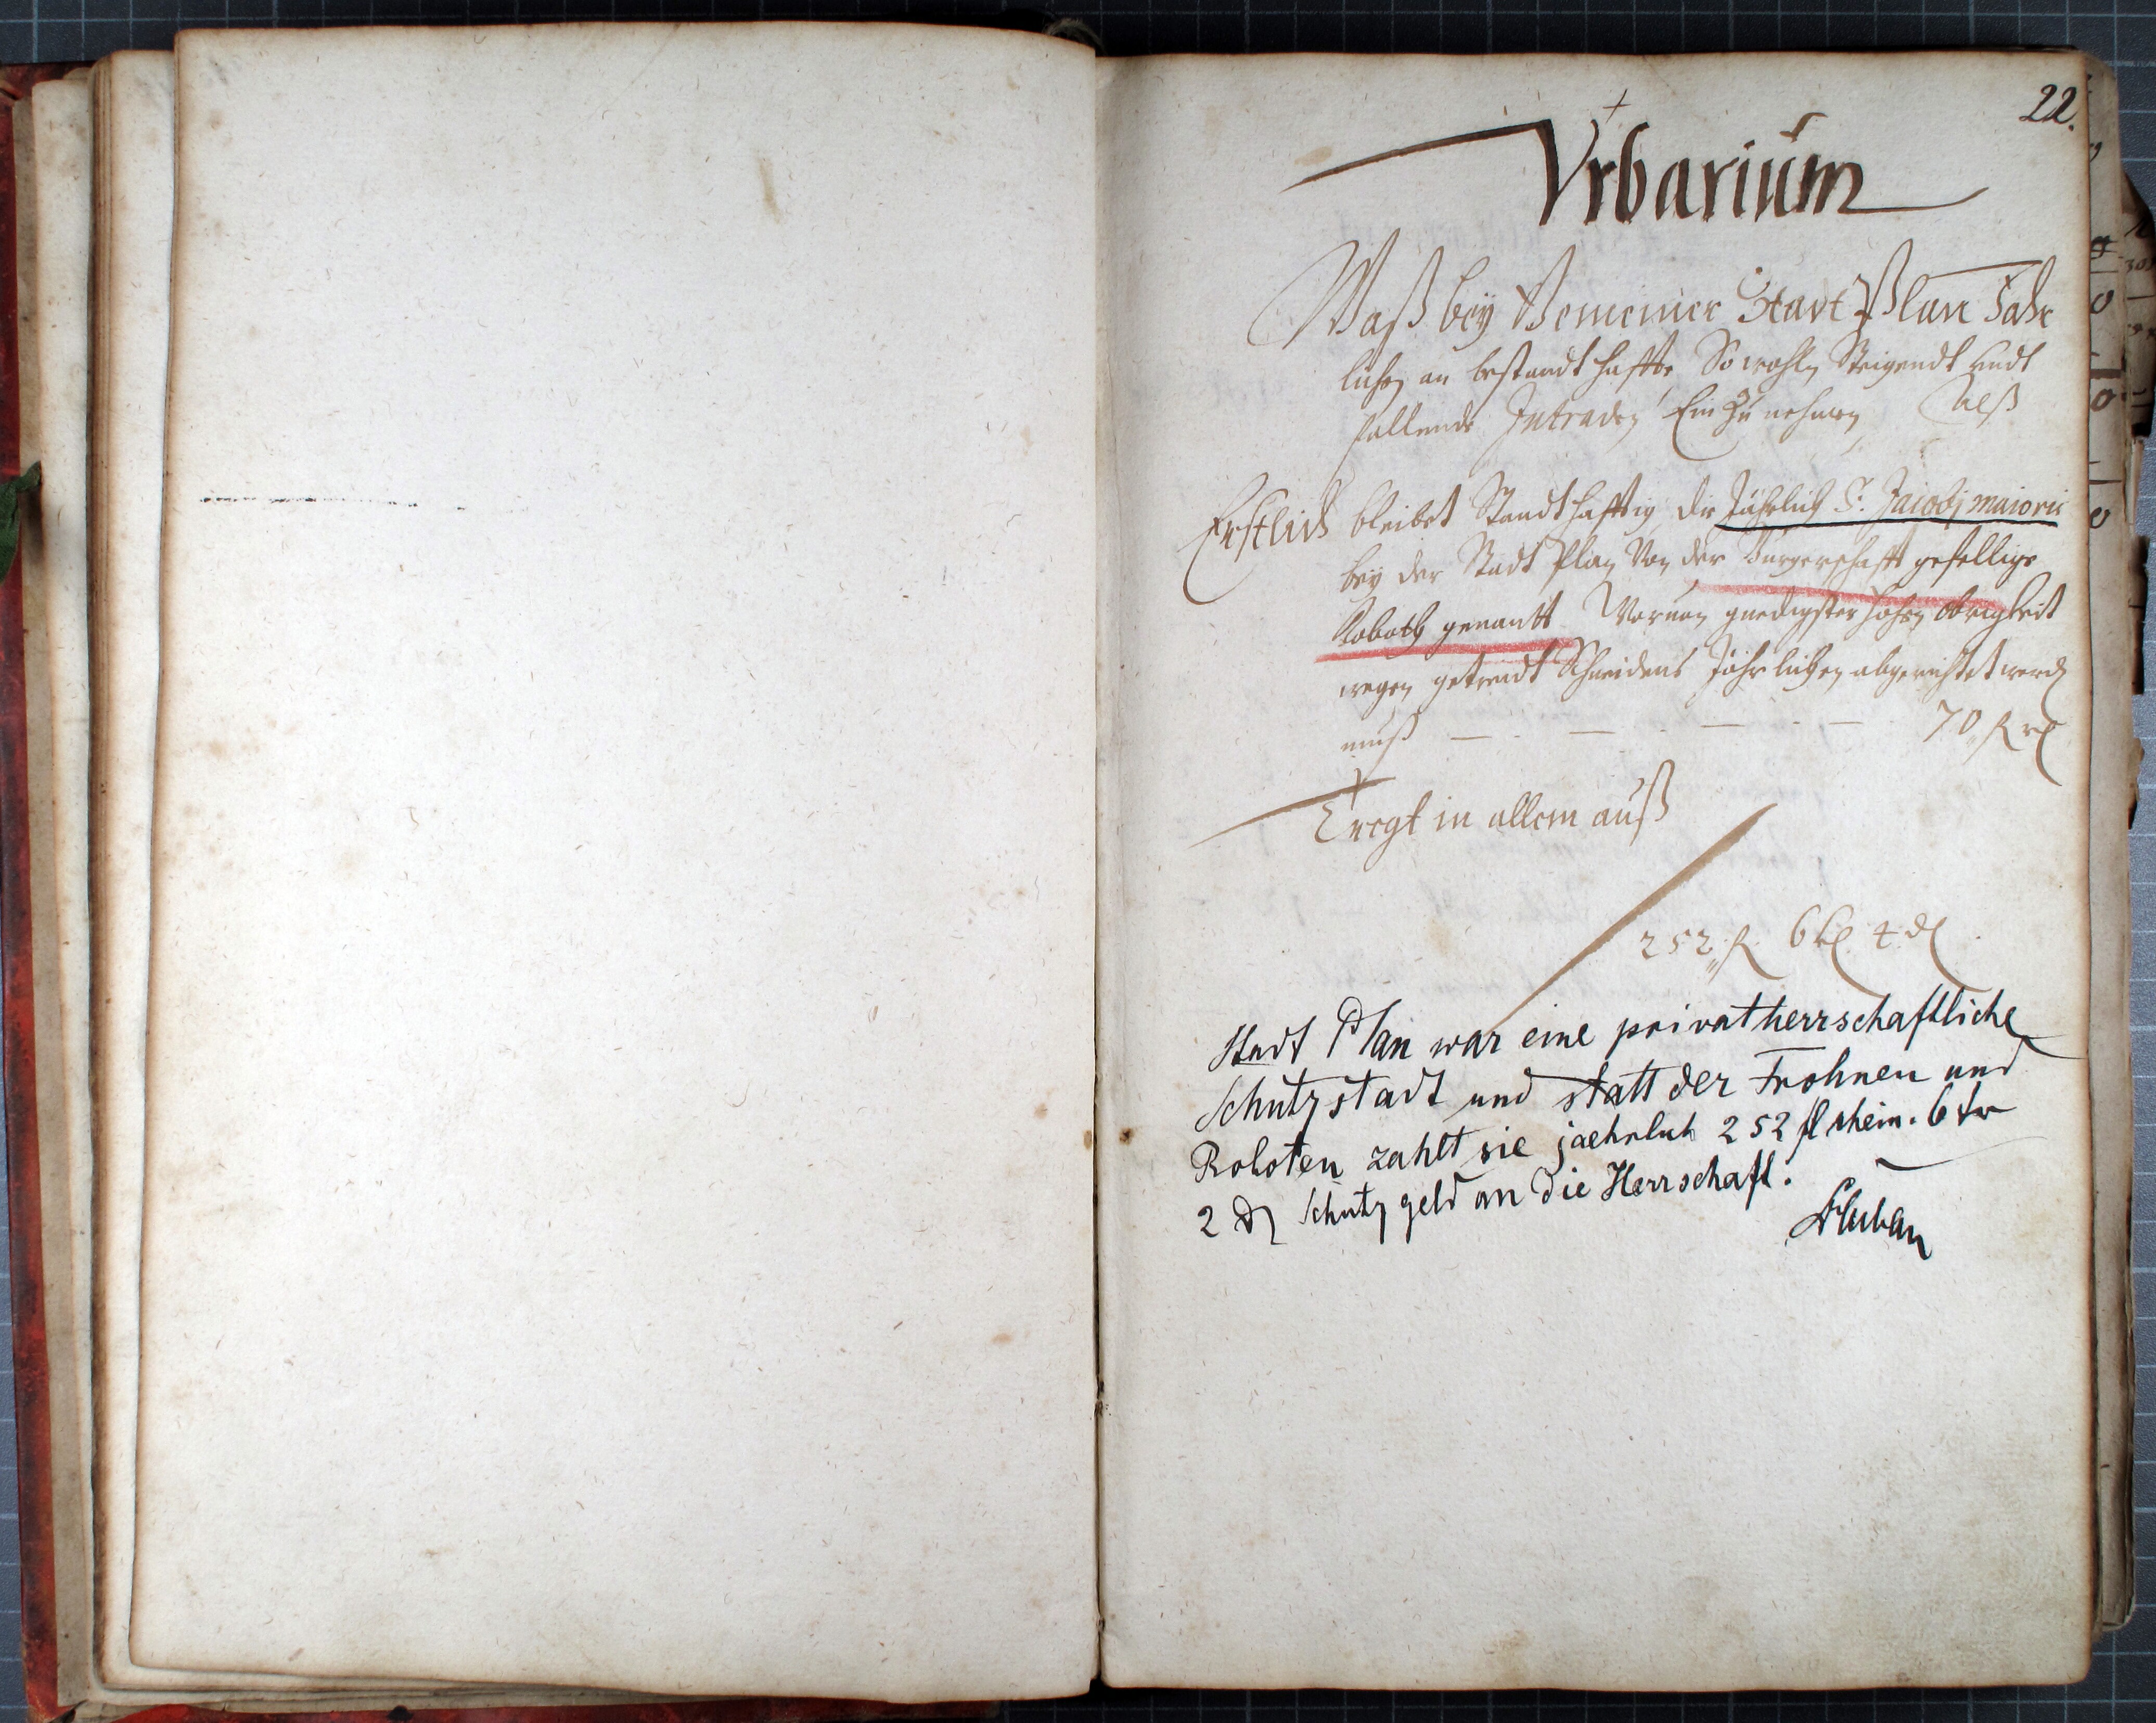 22.
Vrbarium
Waß bey Gemeiner Stadt Plan Jähr
lichen an bestandthaffte Sowohln Steigendt undt
fallende Intraden Ein Zu nehmen Alß
Erstlich bleibet Standthafftig die Jährlich S: Jacobj maioris
bey der Stadt Plan Von der Burgerschafft gefellige
Roboth genantt Woruon gnedigster hohen Obrigkeit
wegen getreidt Schneidens Jährlichen abgerichtet werd
muß — . — . — . — 70 f
Tregt in allem auß
252 f. 6 k 4 d
Stadt Plan war eine privatherrschaftliche
Schutzstadt und statt der Frohnen und
Roboten zahlt sie jaehrlich 252 fl rhein. 6 kr
2 d Schutzgeld an die Herrschaft.